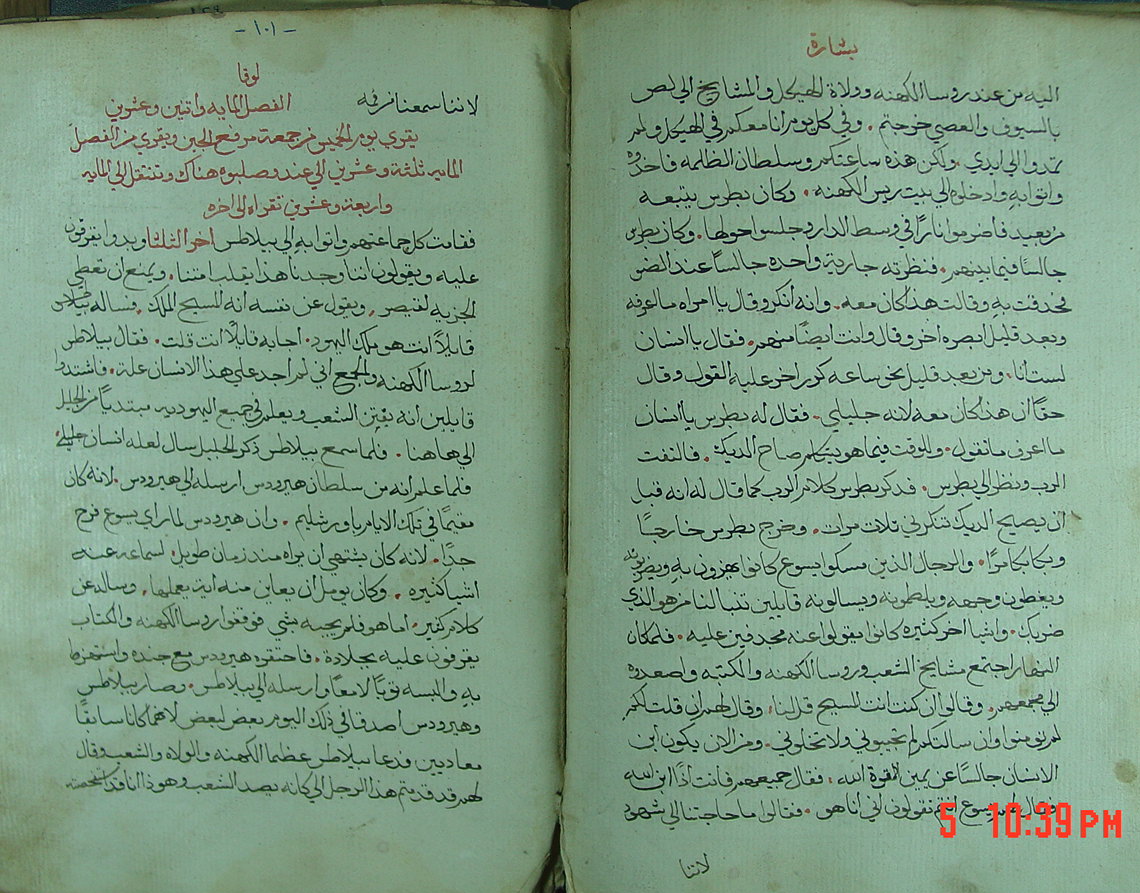 بشارة
اليه من عند روسا الكهنه وولاة الهيكل والمشايخ الي لص
بالسيوف والعصي خرجتم. وفي كل يوم انا معكم في الهيكل ولم
تمدوا الي ايدي. ولكن هذه ساعتكم وسلطان الظلمه فاخدوه
واتوا به وادخلوه الي بيت ريس الكهنه. وكان بطرس يتبعه
من بعيد فاضرموا نارًا في وسط الدار وجلسوا حولها. وكان بطرس
جالسًا فيما بينهم. فنظرته جارية واحده جالسًا عند الضو
فحدقت به وقالت هذا كان معه. وانه أنكر وقال يا امراه ما اعرفه
وبعد قليل ابصره اخر وقال وانت ايضًا منهم. فقال يا انسان
لست أنا. ومن بعد قليل نحو ساعه كرر اخر عليه القول وقال
حقًا ان هذا كان معه لانه جليلي. فقال له بطرس يا انسان
ما اعرف ما تقول. وللوقت فيما هو يتكلم صاح الديك. فالتفت
الرب ونظر الي بطرس. فدكر بطرس كلام الرب كما قال له انه قبل
ان يصيح الديك تنكرني تلات مرات. وخرج بطرس خارجًا
وبكا بكا مرًا. والرجال الذين مسكوا يسوع كانوا يهزون به ويضربونه
ويغطون وجهه ويلطمونه ويسالونه قايلين تنبا لنا من هو الذي
ضربك. واشيا اخر كثيره كانوا يقولوا عنه مجدفين عليه. فلما كان
النهار اجتمع مشايخ الشعب وروسا الكهنه والكتبه واصعدوه
الي مجمعهم. وقالوا ان كنت انت المسيح قل لنا. وقال لهم ان قلت لكم
لم تومنوا وان سالتكم لم تجيبوني ولا تخلوني. ومن الان يكون ابن
الانسان جالسًا عن يمين القوة الله. فقال جميعهم فانت اذًا ابن الله
فقال لهم يسوع انتم تقولون اني انا هو. فقالوا ما حاجتنا الي شهود
لاننا
- ١٠١ -
لوقا
لاننا سمعنا من فيه الفصل المايه واتنين وعشرين
يقري يوم الخميس من جمعة مرفع الجبن ويقري من الفصل
المايه ثلثة وعشرين الي عند وصلبوه هناك وتنتقل الي المايه
واربعة وعشرين تقراه الي اخره
فقامت كل جماعتهم واتوا به الي بيلاطس اخر الثلثا وبدوا يقرفون
عليه ويقولون اننا وجدنا هذا يقلب امتنا. ويمنع ان تعطي
الجزيه لقيصر. ويقول عن نفسه انه المسيح الملك. فساله بيلاطس
قايلاً انت هو ملك اليهود. اجابه قايلاً انت قلت. فقال بيلاطس
لروسا الكهنه والجمع اني لم اجد علي هذا الانسان علة. فاشتدوا
قايلين انه يفتن الشعب ويعلم في جميع اليهوديه مبتديًا من الجليل
الي هاهنا. فلما سمع بيلاطس ذكر الجليل سال لعله انسان جليلي.
فلما علم انه من سلطان هيرودس ارسله الي هيرودس. لانه كان
مقيمًا في تلك الايام باورشليم. وان هيرودس لما راي يسوع فرح
جدًا. لانه كان يشتهي ان يراه مند زمان طويل. لسماعه عنه
اشيا كثيره. وكان يومل ان يعاين منه اية يعملها. وساله عن
كلام كثير. اما هو فلم يجيبه بشي فوقفوا روسا الكهنه والكتاب
يقرفون عليه بجلادة. فاحتقره هيرودس مع جنده واستهزا
به والبسه ثوبًا لامعًا وارسله الي بيلاطس. وصار بيلاطس
وهيرودس اصدقا في ذلك اليوم بعض لبعض لانهما كانا سابقًا
معاديين فدعا بيلاطس عظما الكهنه والولاه والشعب وقال
لهم قد قدمتم هذا الرجل الي كانه يصد الشعب وهوذا انا قد
5 10:39 PM